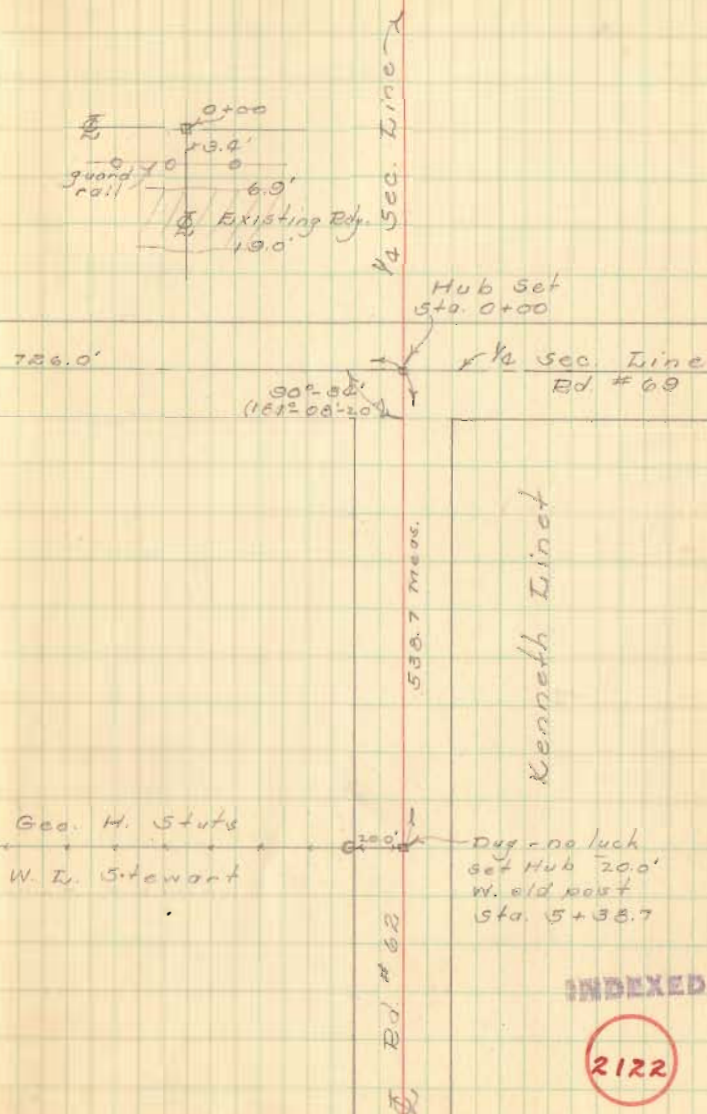 ¼ Sec. Line
0+00
℄
3.4'
guard
rail
6.9'
℄ Existing Rdy.
19.0'
Hub Set
Sta. 0+00
726.0'
¼ Sec. Line
Rd. # 69
90°-34'
(181°-08'-20"
538.7 meas.
Kenneth Linet
Geo. H. Stuts
W. L. Stewart
20.0'
Dug - no luck
Set Hub 20.0'
W. old post
Sta. 5+38.7
℄ Rd # 62
INDEXED
2122